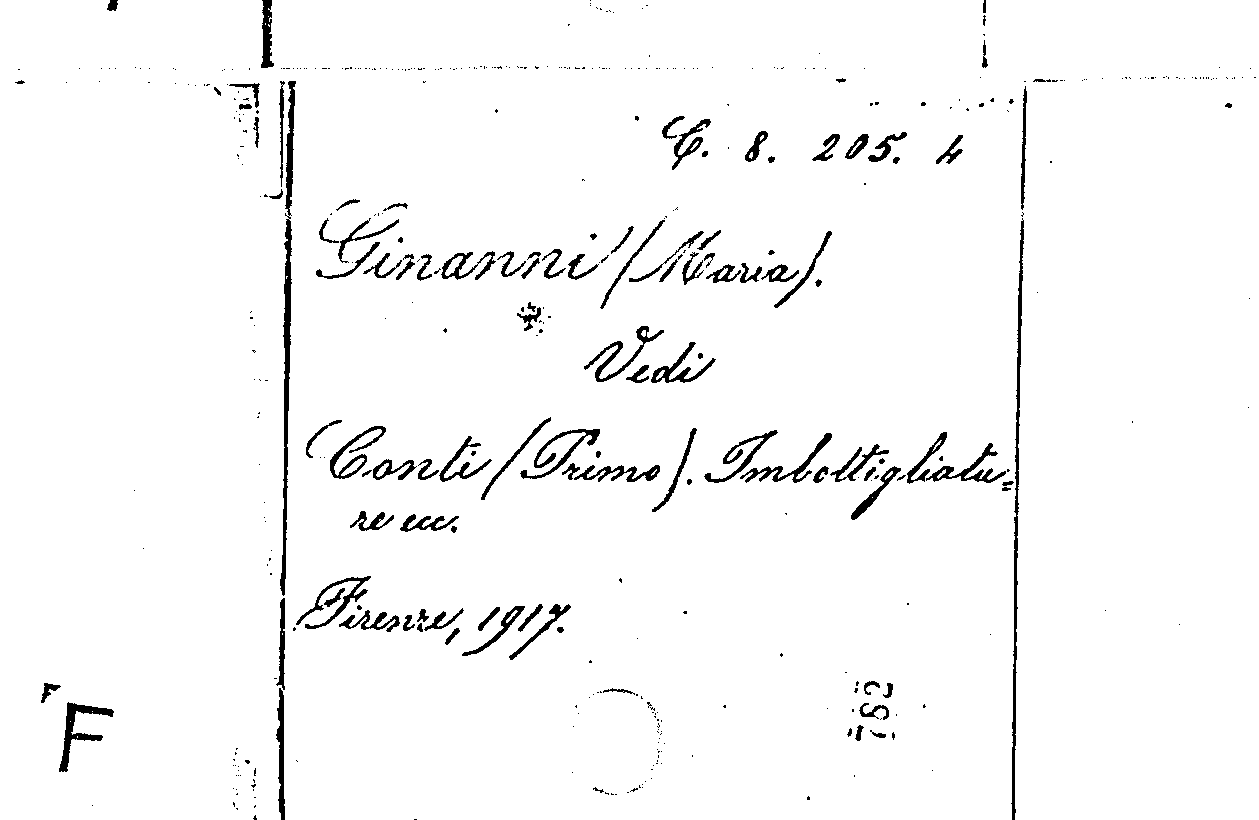 C. 8. 205. 4
Ginanni (Maria).
Vedi
Conti (Primo). Imbottigliatu=
re ecc.
Firenze, 1917.
782
F